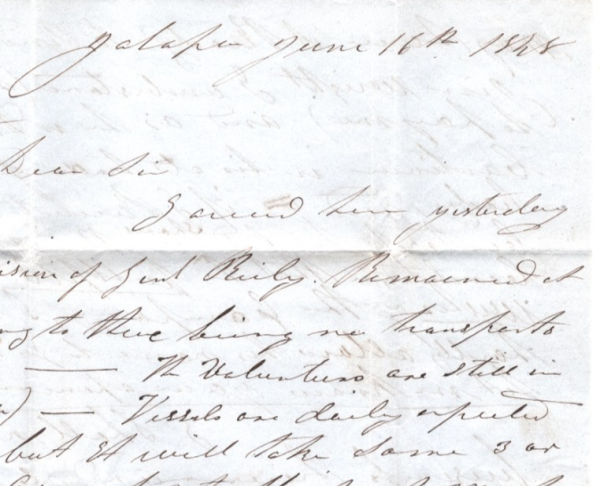 Jalapa June 16th 1848
Dear Sir
I arrived here yesterday
ision of Genl Riley. Remained at
ng to there being no transports
— The Volunteers are still in
— Vessels are daily expected
but it will take some 3 or